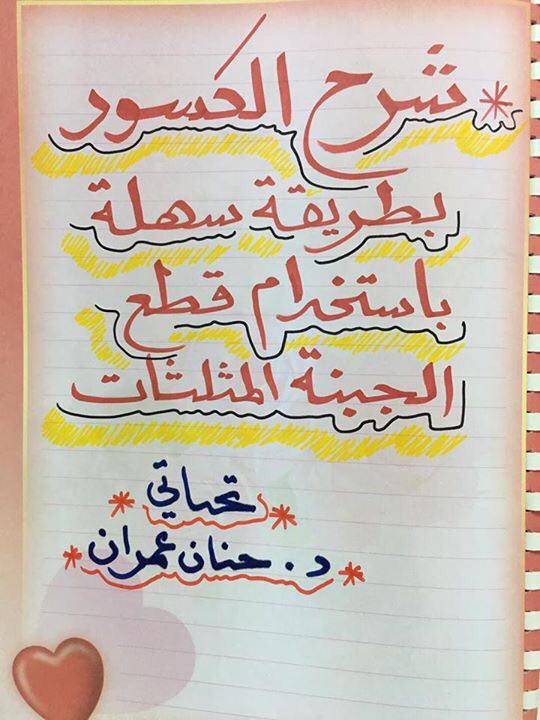 * شرح الكسور
بطريقة سهلة
باستخدام قطع
الجبنة المثلثات
* تحياتي *
* د. حنان عمران *